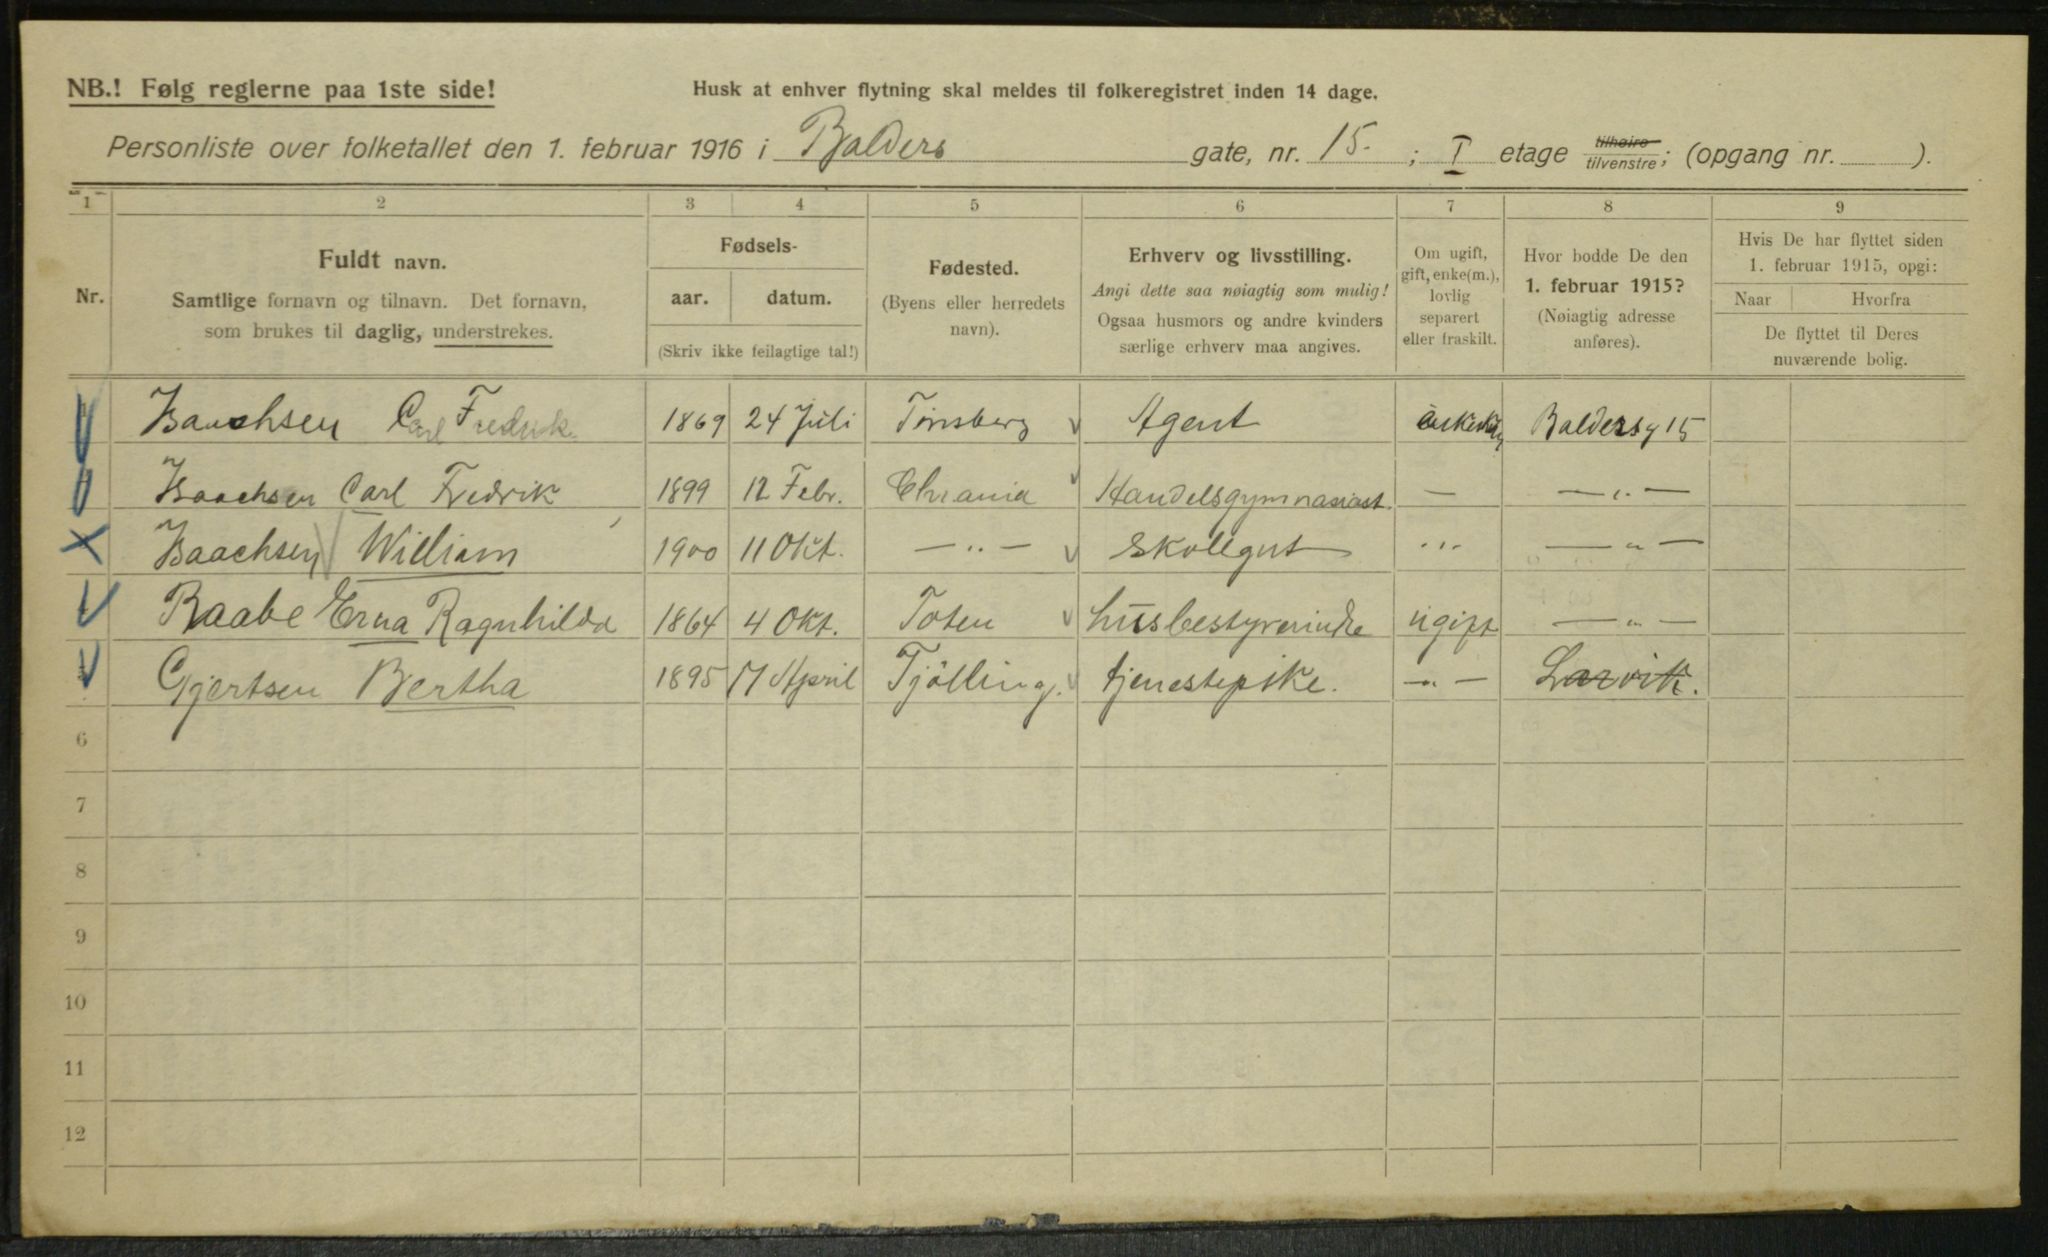 NB.! Følg reglerne paa 1ste side! Husk at enhver flytning skal meldes til folkeregistret inden 14 dage.
Personliste over folketallet den 1. februar 1916 i Balders gate, nr. 15. ; I etage tilhøire tilvenstre; (opgang nr. ).
1 2 3 4 5 6 7 8 9
Nr. Fuldt navn. Samtlige fornavn og tilnavn. Det fornavn, som brukes til daglig, understrekes. Fødsels- aar. datum. (Skriv ikke feilagtige tal!) Fødested. (Byens eller herredets navn). Erhverv og livsstilling. Angi dette saa nøiagtig som mulig! Ogsaa husmors og andre kvinders særlige erhverv maa angives. Om ugift, gift, enke(m.), lovlig separert eller fraskilt. Hvor bodde De den 1. februar 1915? (Nøiagtig adresse anføres). Hvis De har flyttet siden 1. februar 1915, opgi: Naar Hvorfra De flyttet til Deres nuværende bolig.
Isaachsen Carl Fredrik 1869 24 Juli Tønsberg Agent Baldersg 15
Isaachsen Carl Fredrik 1899 12 Febr. Chrania Handelsgymnasiast. — — " —
Isaachsen William 1900 11 Okt. — " — Skolegut " — " —
Raabe Erna Ragnhilda 1864 4 Okt. Toten husbestyrerinde ugift — " —
Gjertsen Bertha 1895 17 April Tjölling. tjenestepike. — " — Larvik.
6
7
8
9
10
11
12